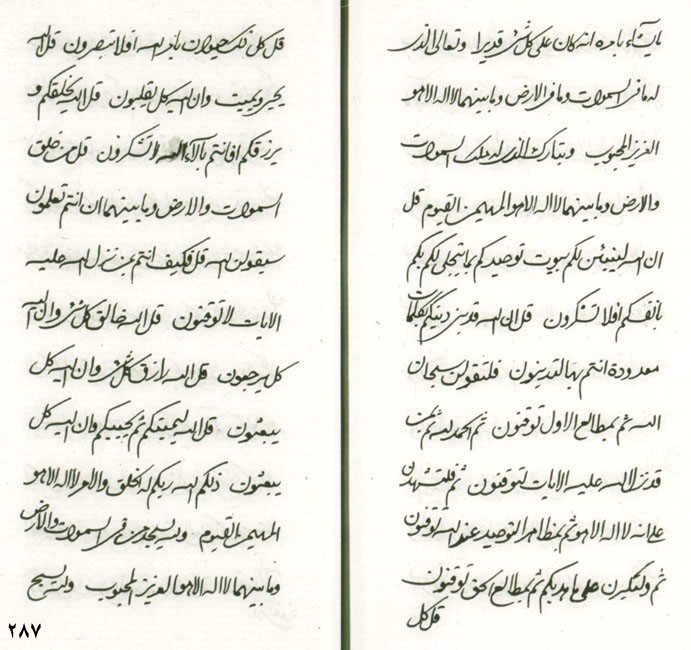 ما يشاء بامره انه كان على كل شئ قديرا وتعالى الذى
له ما فى السموات وما فى الارض وما بينهما لا اله الا هو
العزيز المحبوب وتبارك الذى له ملك السموات
والارض وما بينهما لا اله الا هو المهيمن القيوم قل
ان الله لينبئن لكم بيوت توحيدكم بما تجلى لكم بكم
بانفسكم افلا تشكرون قل ان الله قد نزل دينكم بكلمات
معدودة انتم بها لتدينون فلتقولن سبحان
الله ثم بمطالع الاول توقنون ثم الحمد لله ثم بمن
قد نزل الله عليه الايات لتوقنون ثم فلتشهدن
على انه لا اله الا هو ثم بمظاهر التوحيد عند الله توقنون
ثم ولتكبرن على ما هديكم ثم بمطالع الحق توقنون
قل كل
قل كل ذلك حيوان باذن الله افلا تبصرون قل الله
يحيى ويميت وان اليه كل يقلبون قل الله يخلقكم و
يرزقكم افانتم بالاء الله لا تشكرون قل من خلق
السموات والارض وما بينهما ان انتم تعلمون
سيقولن الله قل فكيف انتم بمن نزل الله عليه
الايات لا توقنون قل الله خالق كل شئ وان اليه
كل يرجعون قل الله رازق كل شئ وان اليه كل
يبعثون قل الله ليميتكم ثم يحييكم وان اليه كل
يبعثون ذلكم الله ربكم له الخلق والامر لا اله الا هو
المهيمن القيوم ولله يسجد من فى السموات والارض
وما بينهما لا اله الا هو العزيز المحبوب ولله يسبح
٢٨٧